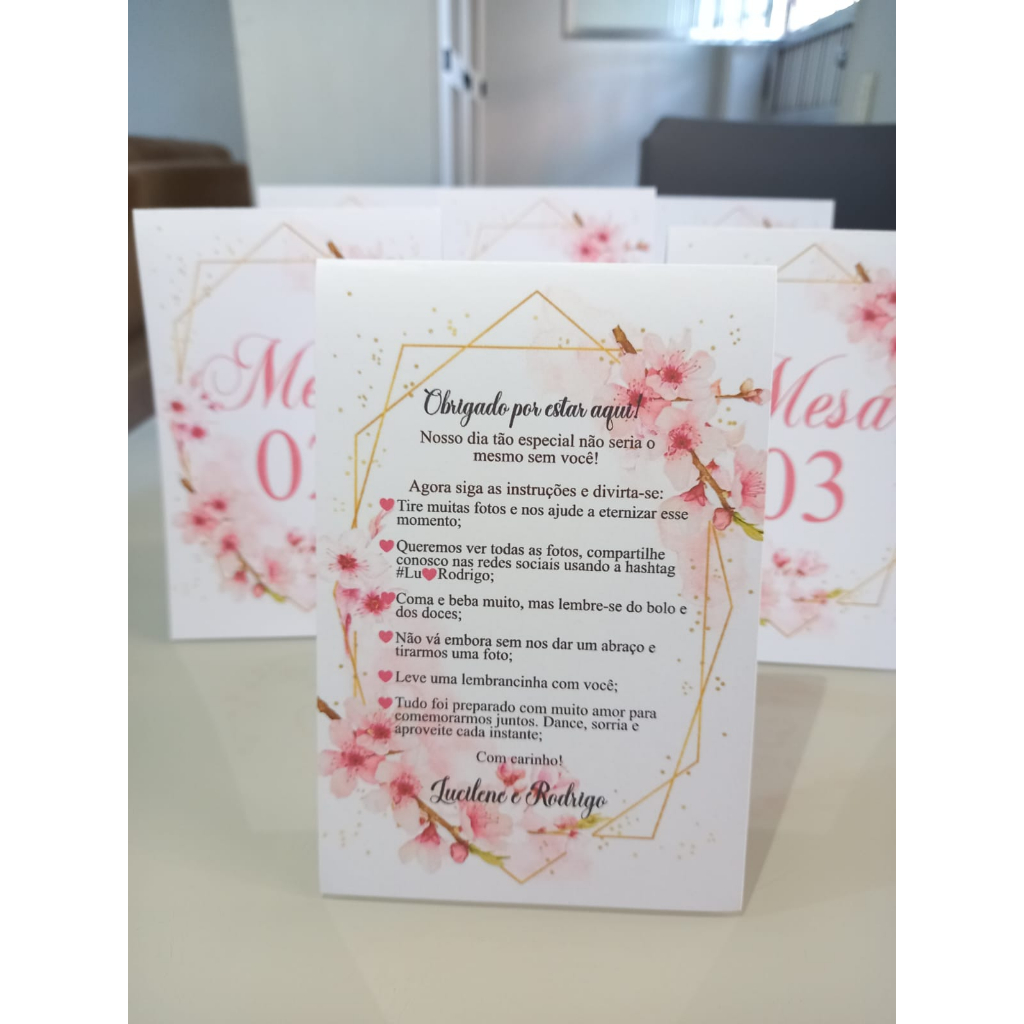 Obrigado por estar aqui!
Nosso dia tão especial não seria o
mesmo sem você!
Agora siga as instruções e divirta-se:
Tire muitas fotos e nos ajude a eternizar esse
momento;
Queremos ver todas as fotos, compartilhe
conosco nas redes sociais usando a hashtag
#Lu❤Rodrigo;
Coma e beba muito, mas lembre-se do bolo e
dos doces;
Não vá embora sem nos dar um abraço e
tirarmos uma foto;
Leve uma lembrancinha com você;
Tudo foi preparado com muito amor para
comemorarmos juntos. Dance, sorria e
aproveite cada instante;
Com carinho!
Lucilene e Rodrigo
Mesa
03